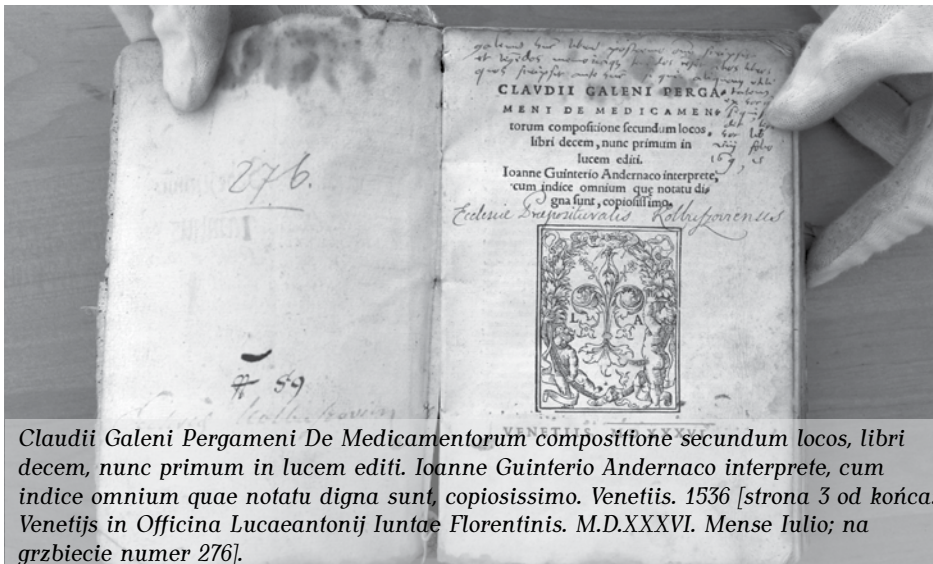 276.
59
CLAVDII GALENI PERGA-
MENI DE MEDICAMEN-
torum compositione secundum locos,
libri decem, nunc primum in
lucem editi.
Ioanne Guinterio Andernaco interprete,
cum indice omnium quę notatu di-
gna sunt, copiosissimo.
Ecclesiae Praeposituralis Kolbuszoviensis
L A
VENETIIS M.D.XXXVI
Claudii Galeni Pergameni De Medicamentorum compositione secundum locos, libri
decem, nunc primum in lucem editi. Ioanne Guinterio Andernaco interprete, cum
indice omnium quae notatu digna sunt, copiosissimo. Venetiis. 1536 [strona 3 od końca.
Venetijs in Officina Lucaeantonij Iuntae Florentinis. M.D.XXXVI. Mense Iulio; na
grzbiecie numer 276].